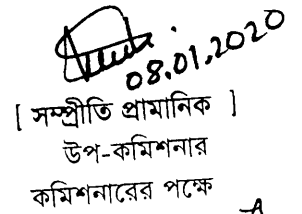 08.01.2020
[ সম্প্রীতি প্রামানিক ]
উপ-কমিশনার
কমিশনারের পক্ষে